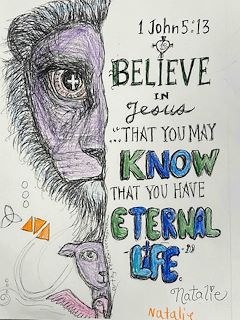 1 John 5:13
BELIEVE
IN
Jesus
"...THAT YOU MAY
KNOW
THAT YOU HAVE
ETERNAL
LIFE."
Natalie
Natalie